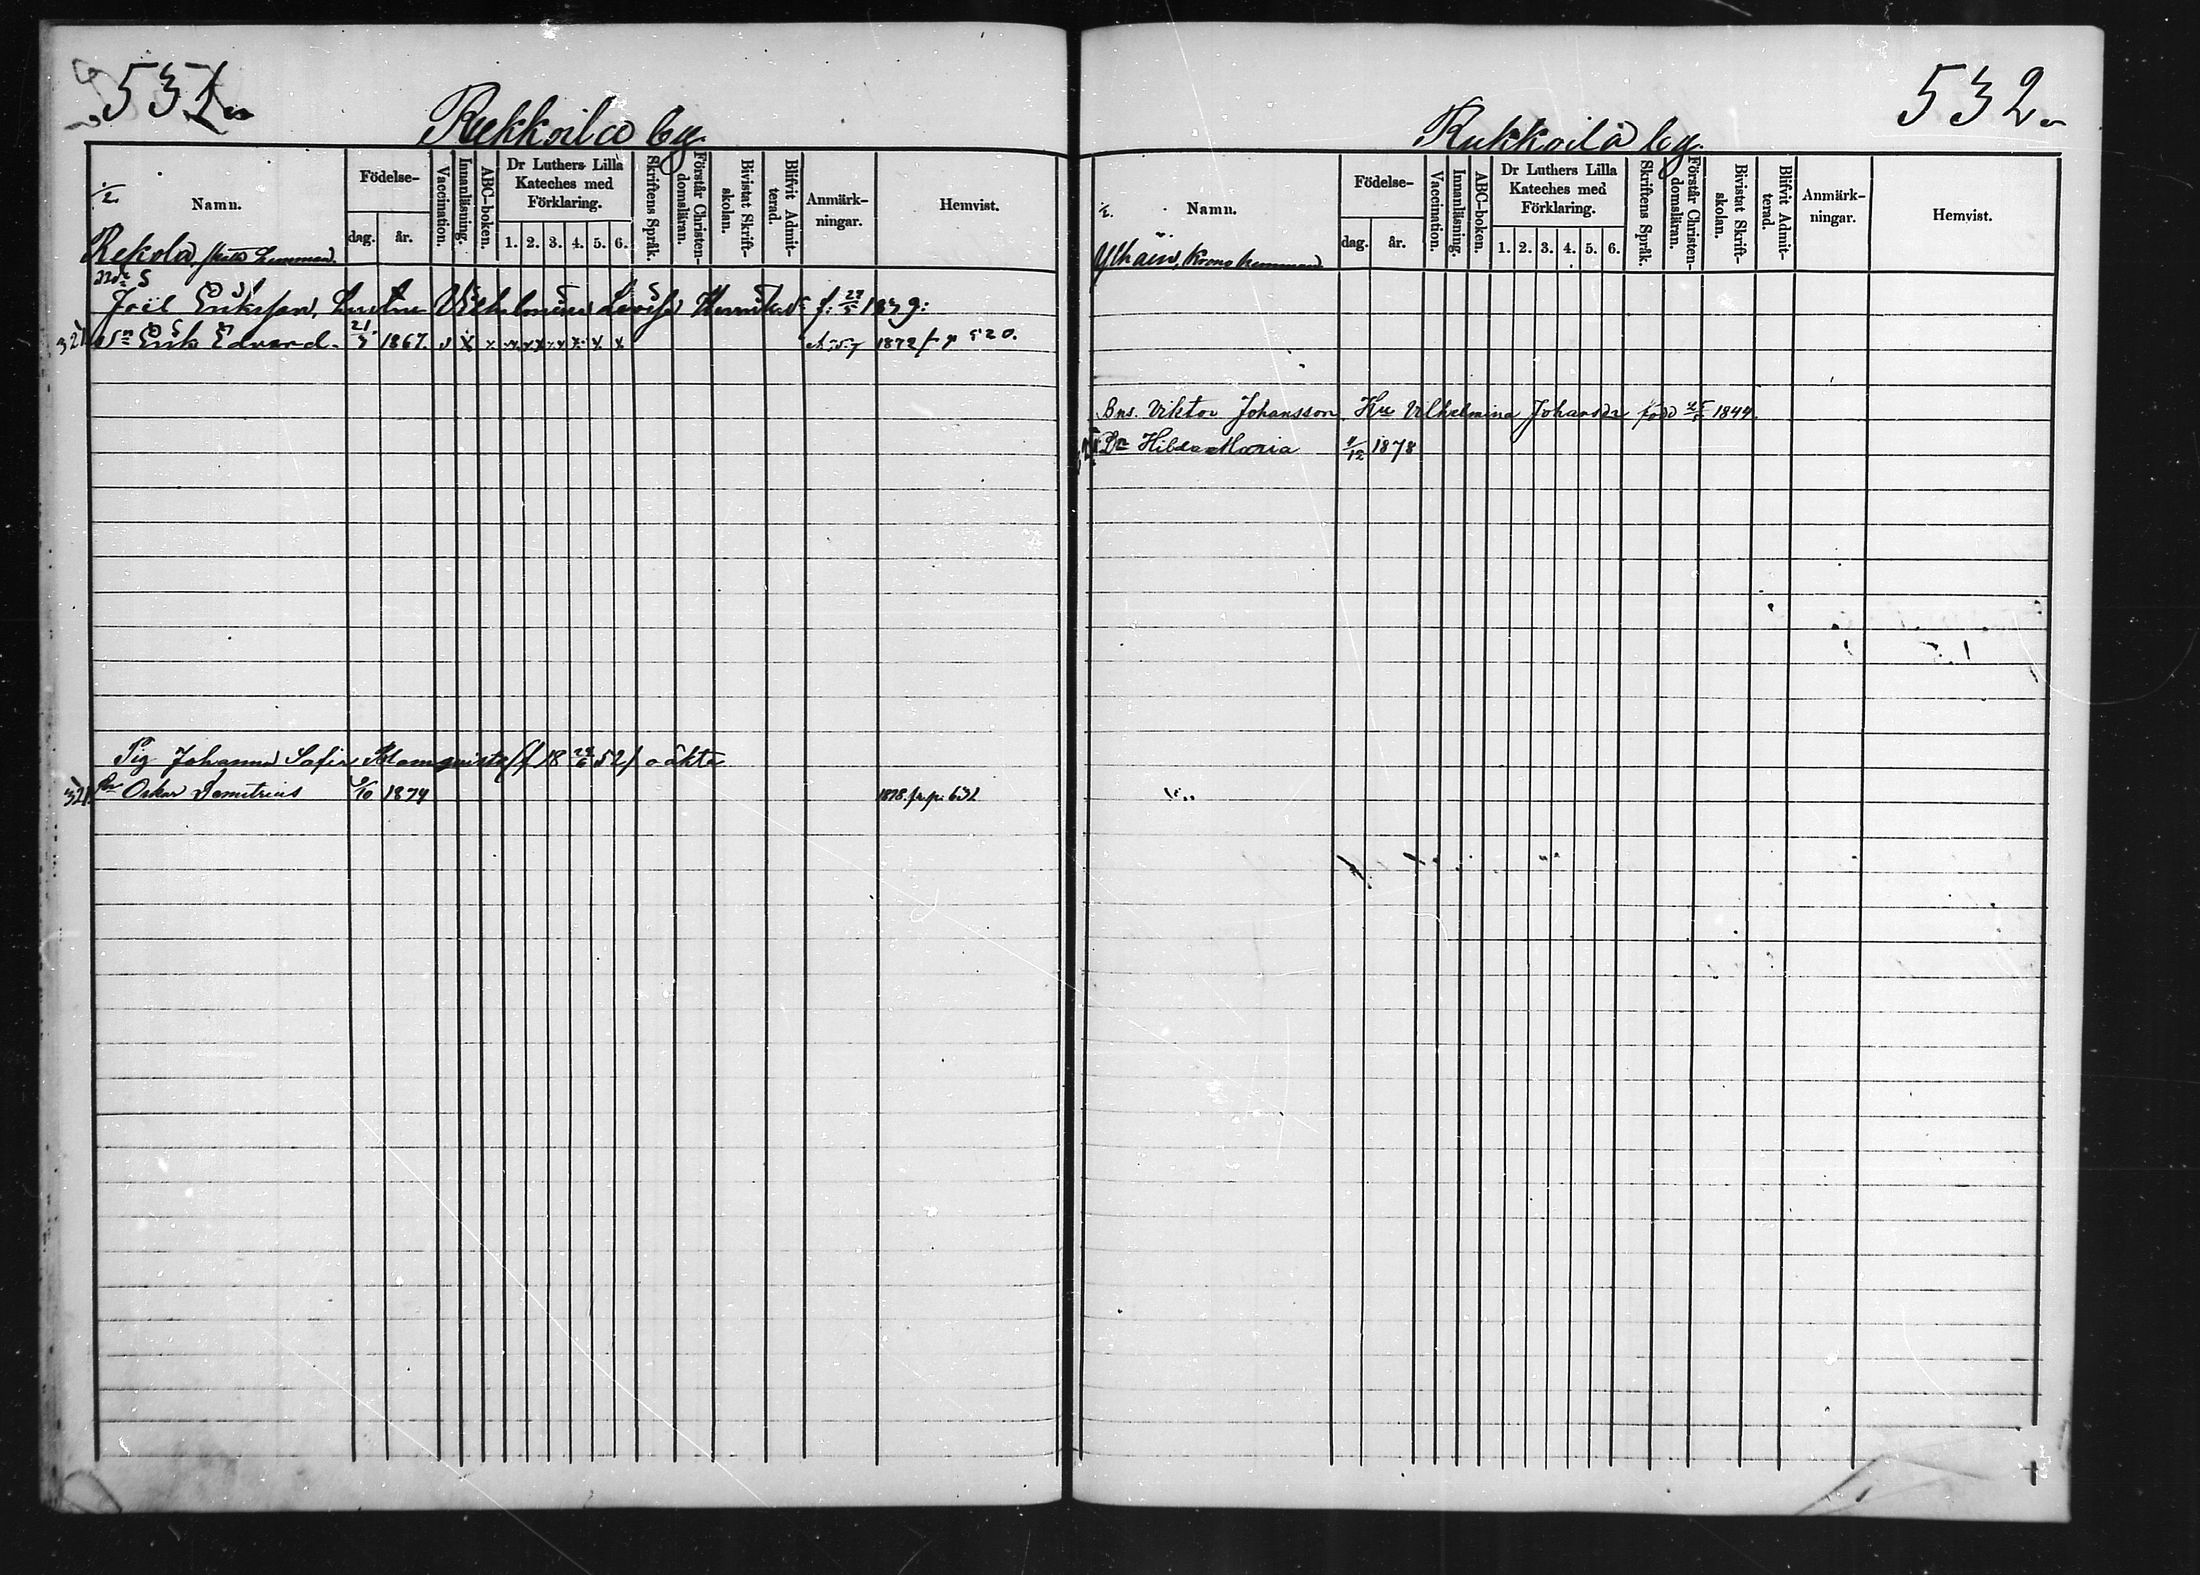 531.
Rukkoila by.
Namn.
Födelse-
dag. år.
Vaccination.
Innanläsning.
ABC-boken.
Dr Luthers Lilla Kateches med Förklaring.
1. 2. 3. 4. 5. 6.
Skriftens Språk.
Förstår Christendomsläran.
Bivistat Skriftskolan.
Blifvit Admitterad.
Anmärkningar.
Hemvist.
Rekola,
Joël Eriksson, Vilhelmina Lovisa f:
Sn Erik Edvard. 1867. 1872 f p 520.
Pig Johanna Sofia oäkta
Oskar Demetrius 1874 1878 fr. p. 632
532.
Rukkoila by.
Namn.
Födelse-
dag. år.
Vaccination.
Innanläsning.
ABC-boken.
Dr Luthers Lilla Kateches med Förklaring.
1. 2. 3. 4. 5. 6.
Skriftens Språk.
Förstår Christendomsläran.
Bivistat Skriftskolan.
Blifvit Admitterad.
Anmärkningar.
Hemvist.
Krono hemman
Bns. Viktor Johansson Hu Vilhelmina Johansdr född 1844.
Dr Hilda Maria 1878